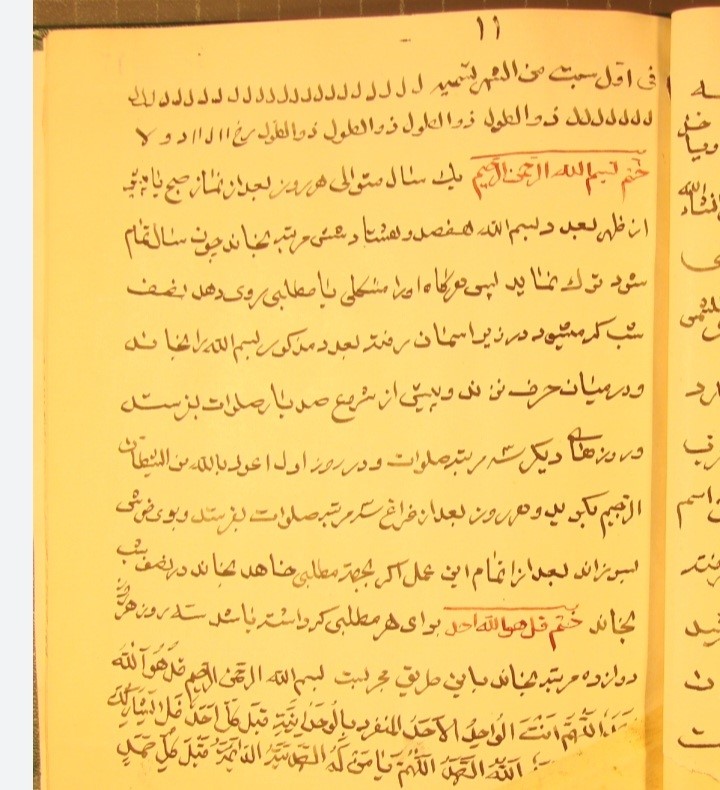 ١١
فی اول سبت من الشهر لل ل ل ل ل ل ل ل ل ل ل ل ل ل ل ل ل
ذو الطول ذو الطول ذو الطول ذو الطول
ختم بسم الله الرحمن الرحیم یك سال متوالی هر روز بعد از نماز صبح یا
از ظهر بعدد بسم الله هفصد و هشتاد شش مرتبه بخاند چون سال تمام
شود ترك نماید پس هرگاه او را مشکلی یا مطلبی روی دهد نصف
شب که میشود در زیر اسمان رفته بعدد مذکور بسم الله را بخاند
و در میان حرف نزند و پیش از شروع صد بار صلوات بفرستد
و روزهای دیگر سه مرتبه صلوات و در روز اول اعوذ بالله من الشیطان
الرجیم بگوید و هر روز بعد از فراغ سه مرتبه صلوات بفرستد و بوی خوش
بسوزاند بعد از اتمام این عمل اگر بجهة مطلبی خاهد بخاند در نصف شب
بخاند ختم قل هو الله احد برای هر مطلبی که داشته باشد سه روز هر روز
دوازده مرتبه بخاند باین طریق مجربست بسم الله الرحمن الرحیم قل هو الله
اللهم انت الواحد الاحد المنفرد بالوحدانیة قبل كل احد
الله الصمد اللهم یا من له الصمدیة قبل كل صمد